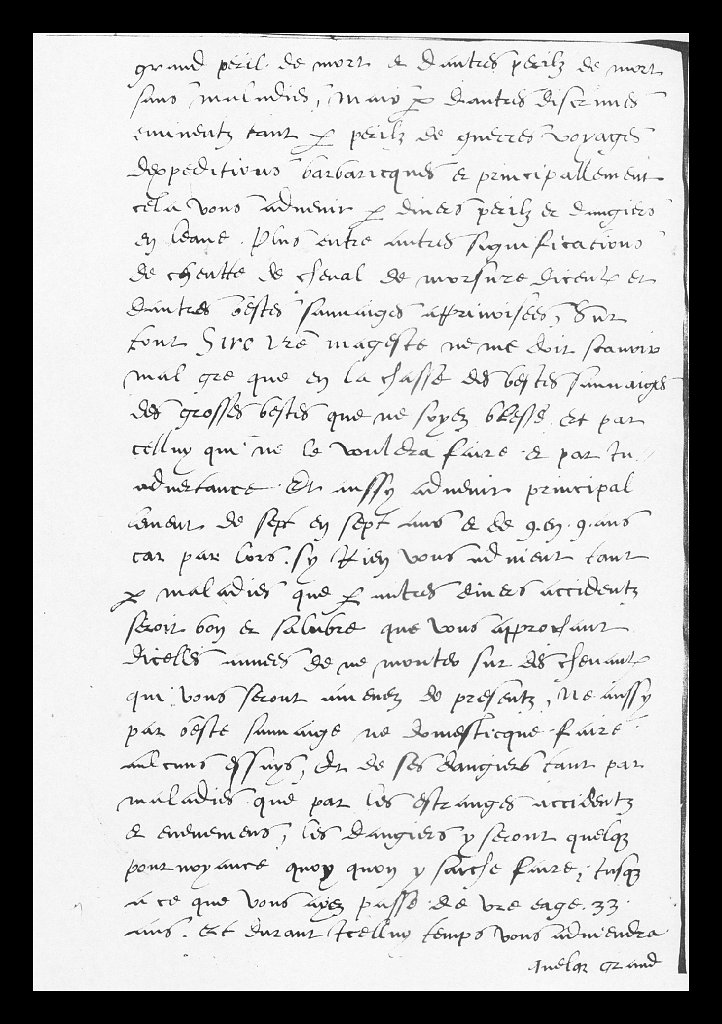 grand peril de mort et dautres perilz de mort
sans maladies, mais p dautres discrimes
eminentz tant p perilz de guerres voyages
dexpeditions barbaricques et principallement
cela vous advenir p divers perilz et dangiers
en leaue. Plus entre autres significations
de cheutte de cheval de morsure diceulx et
dautres bestes sauvaiges apprivoisees, Sur
tout Sire vre mageste ne me doit scavoir
mal gre que en la chasse des bestes sauvaiges
des grosses bestes que ne soyez blesse et par
celluy qui ne le vouldra faire et par In
advertance. Et aussy advenir principal
lement de sept en sept ans et de 9. en. 9. ans
car par lors. sy Rien vous advient tant
p maladies que p autres divers accidentz
seroit bon et salubre que vous approchant
dicelles annees de ne monter sur des chevaux
qui vous seront amenez de presentz, Ne aussy
par beste sauvaige ne domesticque faire
aulcuns essays, Et de ses dangiers tant par
maladies que par les estranges accidentz
et evenemens, les dangiers y seront quelq
pourvoyance quoy quon y sache faire, Jusq
a ce que vous ayez passe de vre eage. 33.
ans. Et durant Icelluy temps vous adviendra
quelq grand